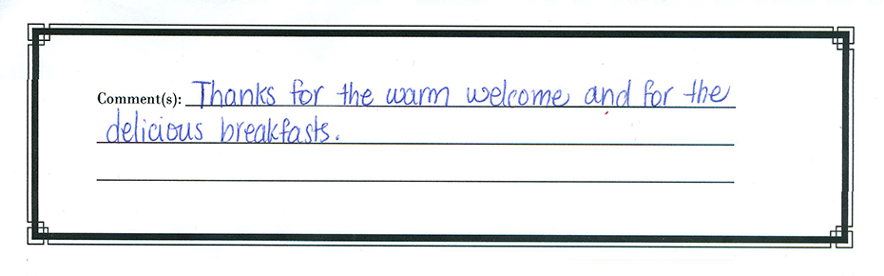 Comment(s): Thanks for the warm welcome and for the
delicious breakfasts.